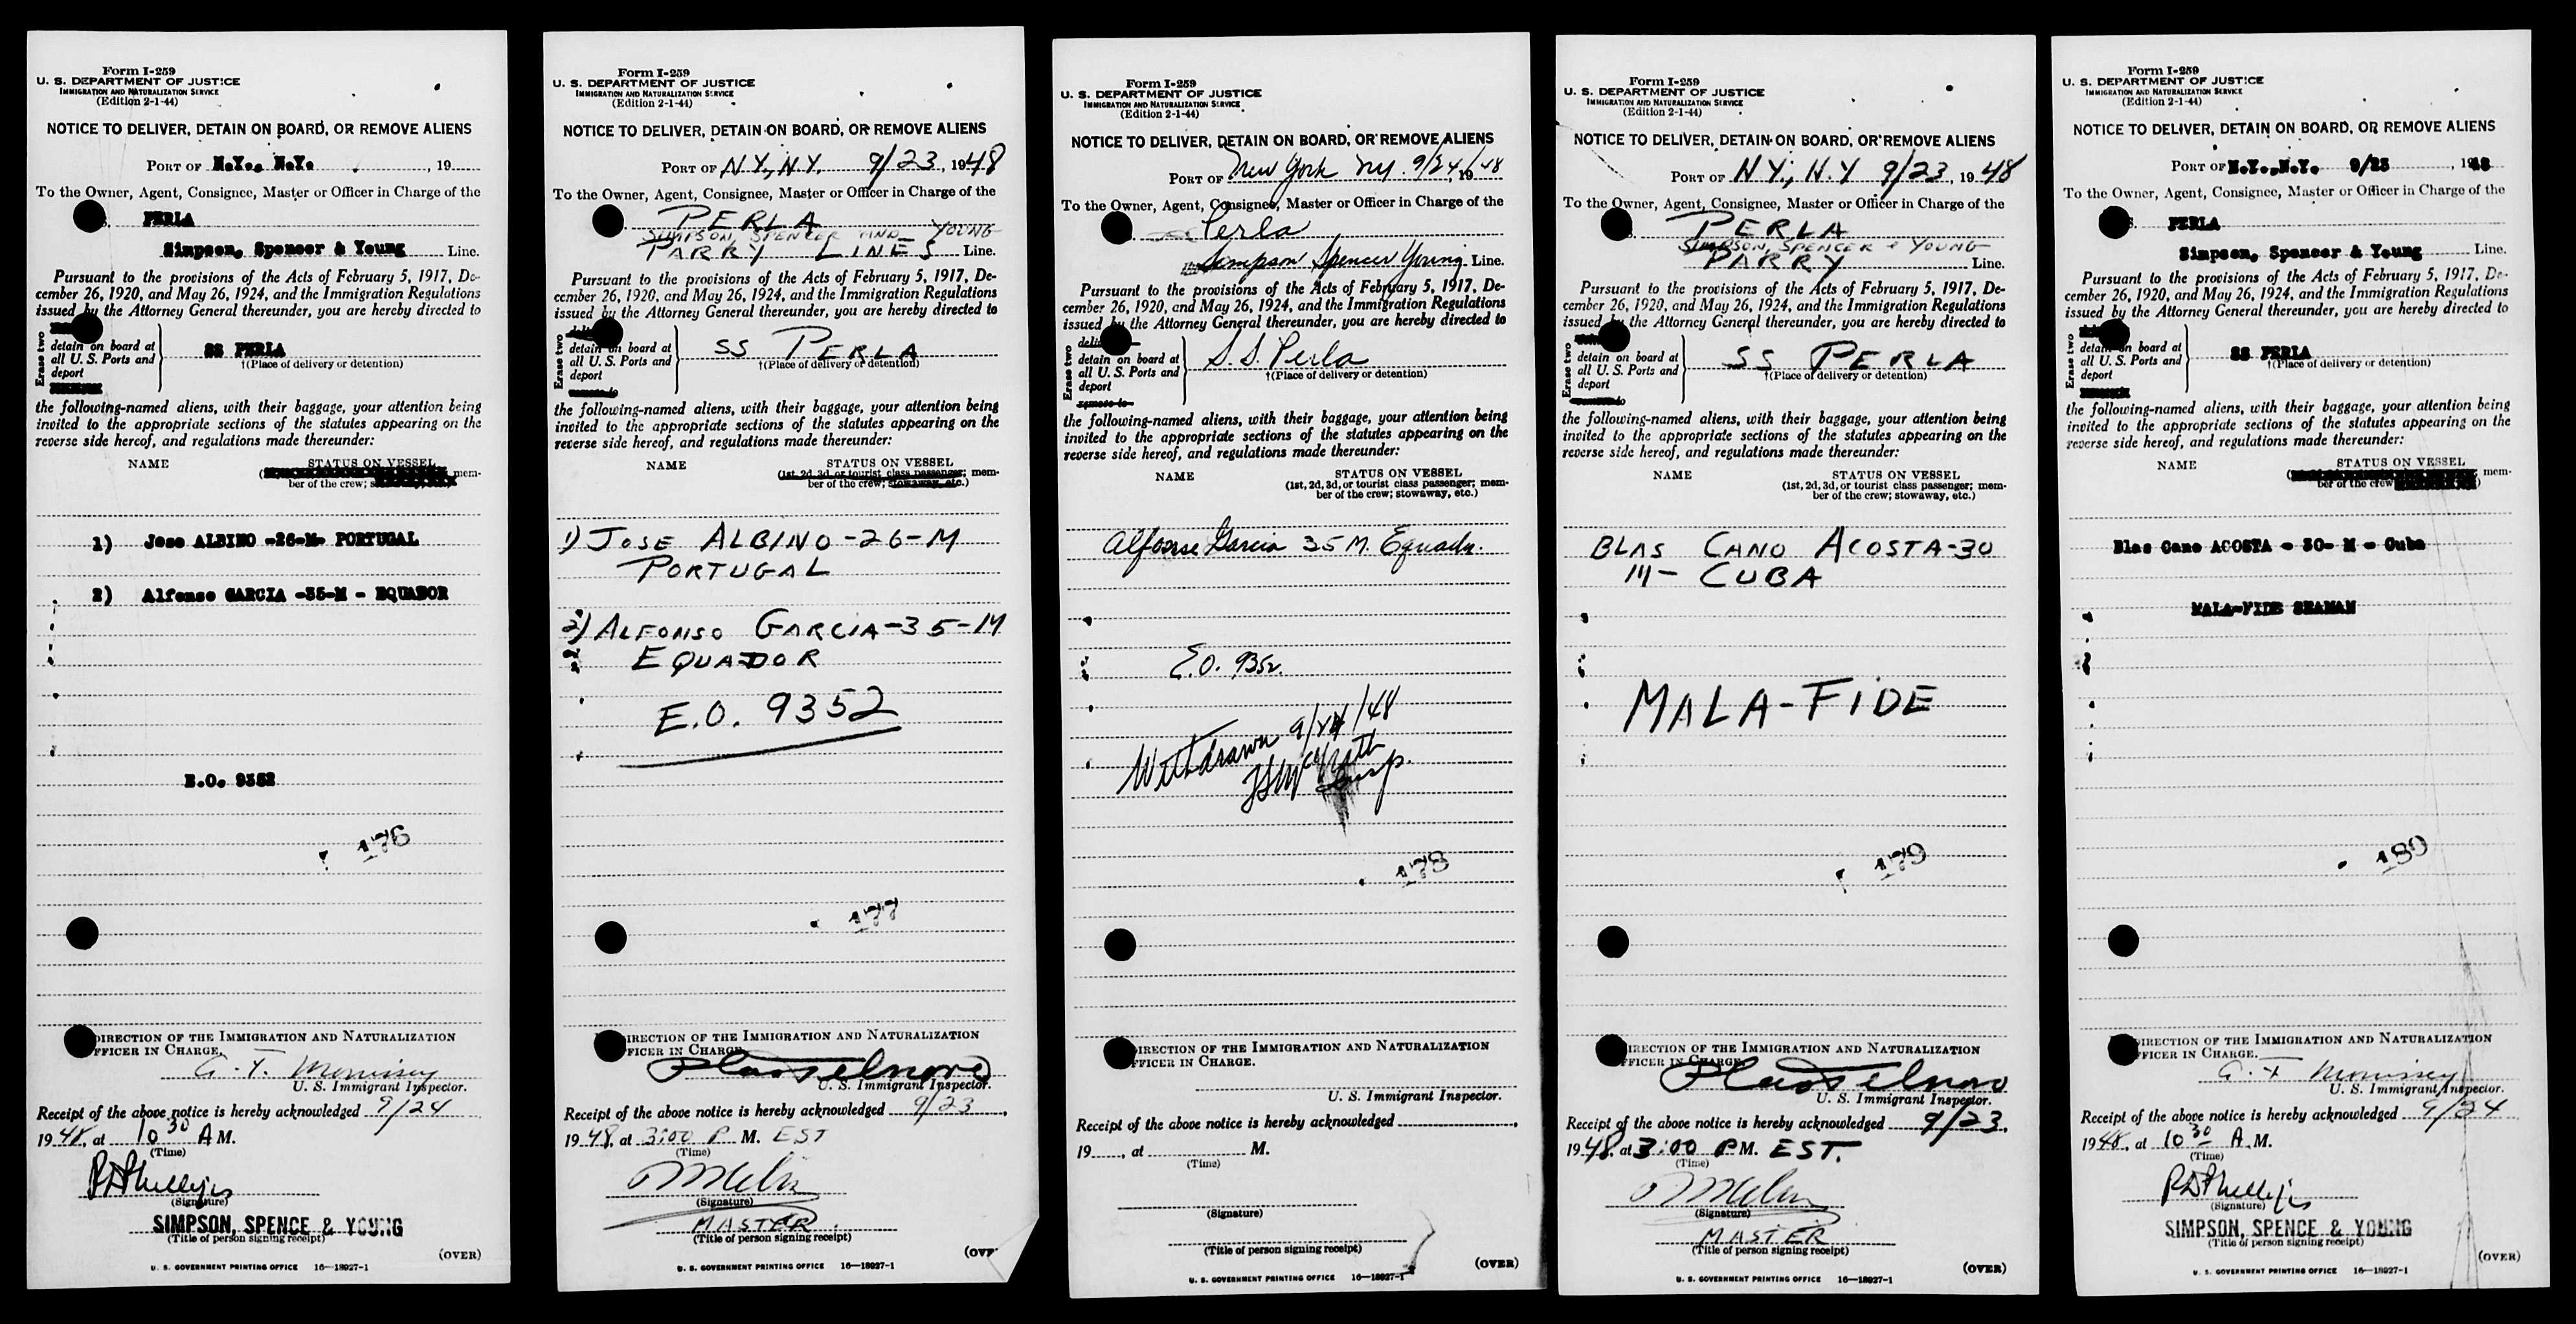 Form I-259
U. S. DEPARTMENT OF JUSTICE
IMMIGRATION AND NATURALIZATION SERVICE
(Edition 2-1-44)
NOTICE TO DELIVER, DETAIN ON BOARD, OR REMOVE ALIENS
PORT OF N.Y., N.Y. , 19
To the Owner, Agent, Consignee, Master or Officer in Charge of the
PERLA
Simpson, Spencer & Young Line.
Pursuant to the provisions of the Acts of February 5, 1917, De-
cember 26, 1920, and May 26, 1924, and the Immigration Regulations
issued by the Attorney General thereunder, you are hereby directed to
Erase two
detain on board at
all U. S. Ports and
deport
SS PERLA
†(Place of delivery or detention)
the following-named aliens, with their baggage, your attention being
invited to the appropriate sections of the statutes appearing on the
reverse side hereof, and regulations made thereunder:
NAME STATUS ON VESSEL
mem-
ber of the crew;
1) Jose ALBINO -26-M- PORTUGAL
2) Alfonso GARCIA -35-M - EQUADOR
E.O. 9352
176
DIRECTION OF THE IMMIGRATION AND NATURALIZATION
FFICER IN CHARGE.
G. F. Morrissey
U. S. Immigrant Inspector.
Receipt of the above notice is hereby acknowledged 9/24
1948, at 10 30 A M.
(Time)
R D Phillips
(Signature)
SIMPSON, SPENCE & YOUNG
(Title of person signing receipt)
(OVER)
U. S. GOVERNMENT PRINTING OFFICE 16—18927-1
Form I-259
U. S. DEPARTMENT OF JUSTICE
IMMIGRATION AND NATURALIZATION SERVICE
(Edition 2-1-44)
NOTICE TO DELIVER, DETAIN ON BOARD, OR REMOVE ALIENS
PORT OF N.Y., N.Y. 9/23, 1948
To the Owner, Agent, Consignee, Master or Officer in Charge of the
PERLA
SIMPSON, SPENCER AND YOUNG
PARRY LINES Line.
Pursuant to the provisions of the Acts of February 5, 1917, De-
cember 26, 1920, and May 26, 1924, and the Immigration Regulations
issued by the Attorney General thereunder, you are hereby directed to
Erase two
detain on board at
all U. S. Ports and
deport
remove to
SS PERLA
†(Place of delivery or detention)
the following-named aliens, with their baggage, your attention being
invited to the appropriate sections of the statutes appearing on the
reverse side hereof, and regulations made thereunder:
NAME STATUS ON VESSEL
(1st, 2d, 3d, or tourist class passenger; mem-
ber of the crew; stowaway, etc.)
1) JOSE ALBINO-26-M
PORTUGAL
2) ALFONSO GARCIA-35-M
EQUADOR
E.O. 9352
177
IRECTION OF THE IMMIGRATION AND NATURALIZATION
FICER IN CHARGE
U. S. Immigrant Inspector.
Receipt of the above notice is hereby acknowledged 9/23,
1948, at 3:00 P M. EST
(Time)
(Signature)
MASTER
(Title of person signing receipt)
(OVE
U. S. GOVERNMENT PRINTING OFFICE 16—18927-1
Form I-259
U. S. DEPARTMENT OF JUSTICE
IMMIGRATION AND NATURALIZATION SERVICE
(Edition 2-1-44)
NOTICE TO DELIVER, DETAIN ON BOARD, OR REMOVE ALIENS
PORT OF New York NY. 9/24, 1948
To the Owner, Agent, Consignee, Master or Officer in Charge of the
Perla
Simpson Spencer Young Line.
Pursuant to the provisions of the Acts of February 5, 1917, De-
cember 26, 1920, and May 26, 1924, and the Immigration Regulations
issued by the Attorney General thereunder, you are hereby directed to
Erase two
detain on board at
all U. S. Ports and
deport
remove to
S.S. Perla
†(Place of delivery or detention)
the following-named aliens, with their baggage, your attention being
invited to the appropriate sections of the statutes appearing on the
reverse side hereof, and regulations made thereunder:
NAME STATUS ON VESSEL
(1st, 2d, 3d, or tourist class passenger; mem-
ber of the crew; stowaway, etc.)
Alfonse Garcia 35 M. Equador.
E.O. 9352.
Withdrawn 9/24/48
Insp.
178
IRECTION OF THE IMMIGRATION AND NATURALIZATION
FFICER IN CHARGE.
U. S. Immigrant Inspector.
Receipt of the above notice is hereby acknowledged ,
19 , at M.
(Time)
(Signature)
(Title of person signing receipt)
(OVER)
U. S. GOVERNMENT PRINTING OFFICE 16—18927-1
Form I-259
U. S. DEPARTMENT OF JUSTICE
IMMIGRATION AND NATURALIZATION SERVICE
(Edition 2-1-44)
NOTICE TO DELIVER, DETAIN ON BOARD, OR REMOVE ALIENS
PORT OF N.Y., N.Y 9/23, 1948
To the Owner, Agent, Consignee, Master or Officer in Charge of the
PERLA
SIMPSON, SPENCER & YOUNG
PARRY Line.
Pursuant to the provisions of the Acts of February 5, 1917, De-
cember 26, 1920, and May 26, 1924, and the Immigration Regulations
issued by the Attorney General thereunder, you are hereby directed to
Erase two
detain on board at
all U. S. Ports and
deport
SS PERLA
†(Place of delivery or detention)
the following-named aliens, with their baggage, your attention being
invited to the appropriate sections of the statutes appearing on the
reverse side hereof, and regulations made thereunder:
NAME STATUS ON VESSEL
(1st, 2d, 3d, or tourist class passenger; mem-
ber of the crew; stowaway, etc.)
BLAS CANO ACOSTA-30
M- CUBA
MALA-FIDE
179
IRECTION OF THE IMMIGRATION AND NATURALIZATION
FFICER IN CHARGE
U. S. Immigrant Inspector.
Receipt of the above notice is hereby acknowledged 9/23.
1948, at 3:00 P M. EST.
(Time)
(Signature)
MASTER
(Title of person signing receipt)
(OVER)
U. S. GOVERNMENT PRINTING OFFICE 16—18927-1
Form I-259
U. S. DEPARTMENT OF JUSTICE
IMMIGRATION AND NATURALIZATION SERVICE
(Edition 2-1-44)
NOTICE TO DELIVER, DETAIN ON BOARD, OR REMOVE ALIENS
PORT OF N.Y.,N.Y. 9/23 1948
To the Owner, Agent, Consignee, Master or Officer in Charge of the
PERLA
Simpson, Spencer & Young Line.
Pursuant to the provisions of the Acts of February 5, 1917, De-
cember 26, 1920, and May 26, 1924, and the Immigration Regulations
issued by the Attorney General thereunder, you are hereby directed to
Erase two
detain on board at
all U. S. Ports and
deport
SS PERLA
†(Place of delivery or detention)
the following-named aliens, with their baggage, your attention being
invited to the appropriate sections of the statutes appearing on the
reverse side hereof, and regulations made thereunder:
NAME STATUS ON VESSEL
mem-
ber of the crew
Blas Cano ACOSTA - 30- M - Cuba
MALA-FIDE SEAMAN
180
IRECTION OF THE IMMIGRATION AND NATURALIZATION
FFICER IN CHARGE.
G. F Morrissey
U. S. Immigrant Inspector.
Receipt of the above notice is hereby acknowledged 9/24
1948, at 10 30 A. M.
(Time)
R D Phillips
(Signature)
SIMPSON, SPENCE & YOUNG
(Title of person signing receipt)
(OVER)
U. S. GOVERNMENT PRINTING OFFICE 16—18927-1